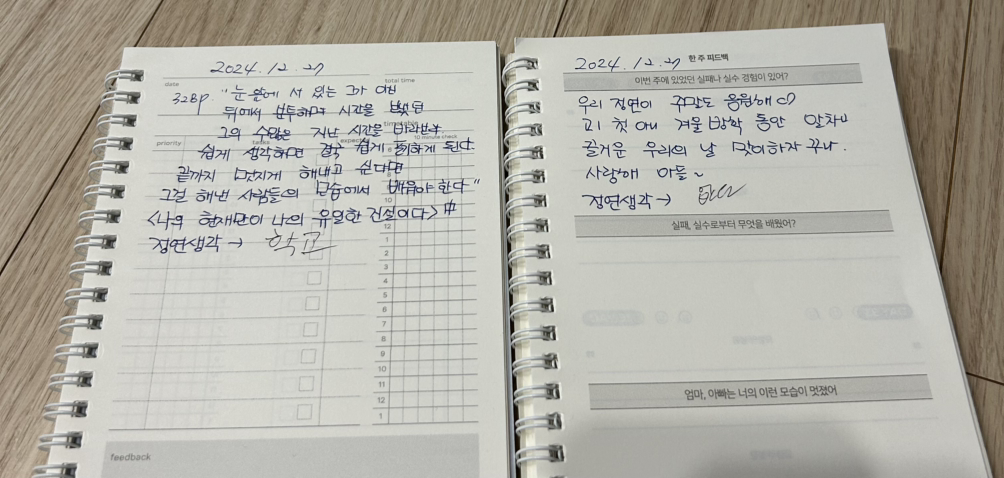 2024. 12. 27
date
total time
328p. "눈 앞에 서 있는 그가 이미
뒤에서 분투하며 시간을 보냈던
그의 수많은 지난 시간을 바라봐라.
timetable
priority
tasks
10 minute check
쉽게 생각하면 결국 쉽게 포기하게 된다
끝까지 멋지게 해내고 싶다면
그걸 해낸 사람들의 모습에서 배워야 한다"
<나의 현재만이 나의 유일한 진실이다> 中
정연생각→ 학교
12
1
2
3
4
5
6
7
8
9
10
11
12
1
feedback
2024. 12. 27
한 주 피드백
이번 주에 있었던 실패나 실수 경험이 있어?
우리 정연이 주말도 응원해♡
고1 첫
겨울 방학 동안
즐거운 우리의 날 맞이하자꾸나.
사랑해 아들~
정연생각→
실패, 실수로부터 무엇을 배웠어?
엄마, 아빠는 너의 이런 모습이 멋졌어